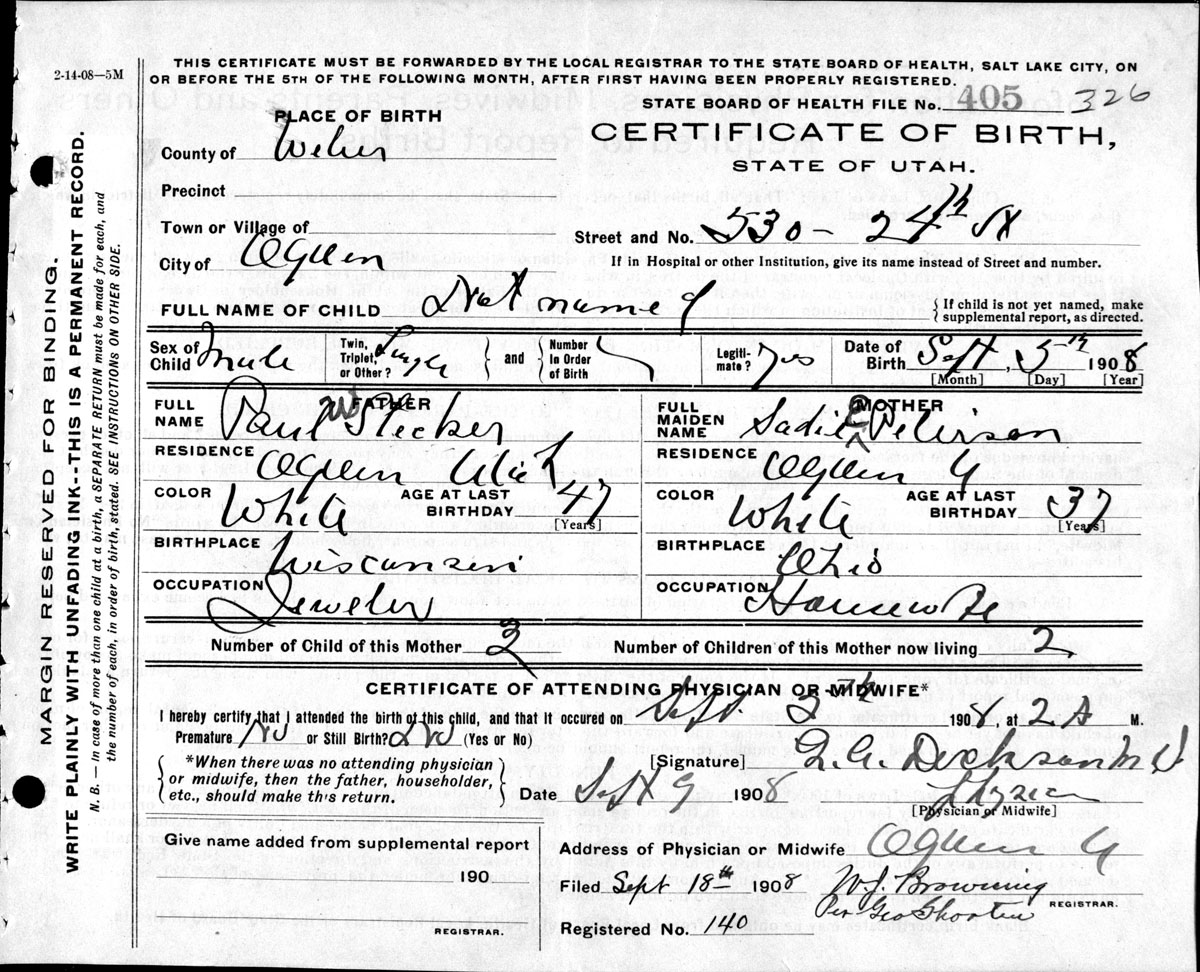 2-14-08—5M
THIS CERTIFICATE MUST BE FORWARDED BY THE LOCAL REGISTRAR TO THE STATE BOARD OF HEALTH, SALT LAKE CITY, ON
OR BEFORE THE 5TH OF THE FOLLOWING MONTH, AFTER FIRST HAVING BEEN PROPERLY REGISTERED.
STATE BOARD OF HEALTH FILE No. 405 326
PLACE OF BIRTH
CERTIFICATE OF BIRTH,
STATE OF UTAH.
County of Weber
Precinct
Town or Village of
Street and No. 530 - 24th St
City of Ogden
If in Hospital or other Institution, give its name instead of Street and number.
FULL NAME OF CHILD Not named
{ If child is not yet named, make
supplemental report, as directed.
Sex of Child Male
Twin, Triplet, or Other? Single } and { Number in Order of Birth
Legiti-mate? Yes
Date of Birth Sept, 5th 1908
[Month] [Day] [Year]
FATHER
FULL NAME Paul Stecker
MOTHER
FULL MAIDEN NAME Sadie E Peterson
RESIDENCE Ogden Utah
RESIDENCE Ogden U
COLOR White AGE AT LAST BIRTHDAY 47 [Years]
COLOR White AGE AT LAST BIRTHDAY 37 [Years]
BIRTHPLACE Wisconsin
BIRTHPLACE Ohio
OCCUPATION Jeweler
OCCUPATION Housewife
Number of Child of this Mother 2 Number of Children of this Mother now living 2
CERTIFICATE OF ATTENDING PHYSICIAN OR MIDWIFE*
I hereby certify that I attended the birth of this child, and that it occured on Sept. 1908, at 2 A M.
Premature No or Still Birth? No (Yes or No)
*When there was no attending physician
or midwife, then the father, householder,
etc., should make this return.
[Signature] Dickson M D
Date Sept 9 1908
[Physician or Midwife]
Give name added from supplemental report
190
REGISTRAR.
Address of Physician or Midwife Ogden U
Filed Sept 18th 1908 W. J. Browning
Per Geo Shorten REGISTRAR.
Registered No. 140
MARGIN RESERVED FOR BINDING.
WRITE PLAINLY WITH UNFADING INK--THIS IS A PERMANENT RECORD.
N. B. — In case of more than one child at a birth, a SEPARATE RETURN must be made for each, and
the number of each, in order of birth, stated. SEE INSTRUCTIONS ON OTHER SIDE.